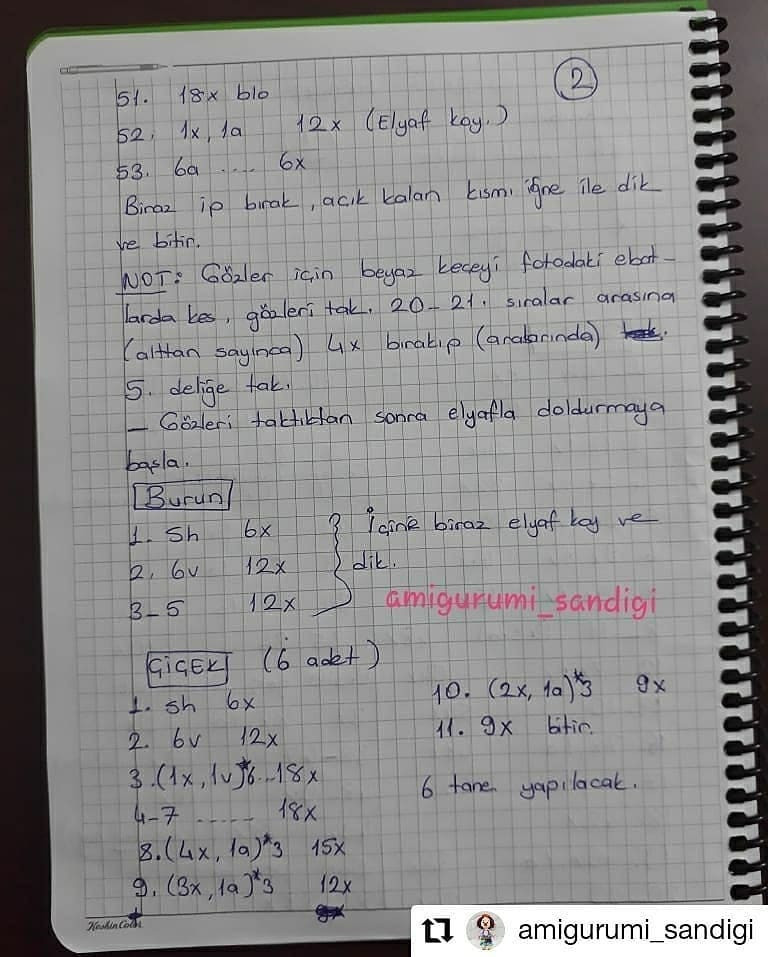 2
51. 18x blo
52. 1x, 1a 12x (Elyaf koy.)
53. 6a .... 6x
Biraz ip bırak, açık kalan kısmı iğne ile dik
ve bitir.
NOT: Gözler için beyaz keçeyi fotodaki ebat-
larda kes, gözleri tak. 20-21. sıralar arasına
(alttan sayınca) 4x bırakıp (aralarında)
5. deliğe tak.
- Gözleri taktıktan sonra elyafla doldurmaya
başla.
Burun
1. Sh 6x
2. 6v 12x
3-5 12x
İçine biraz elyaf koy ve
dik.
amigurumi_sandigi
ÇİÇEK (6 adet)
1. Sh 6x
2. 6v 12x
3. (1x, 1v)*6...18x
4-7 ..... 18x
8. (4x, 1a)*3 15x
9. (3x, 1a)*3 12x
10. (2x, 1a)*3 9x
11. 9x bitir.
6 tane yapılacak.
KeskinColor
amigurumi_sandigi